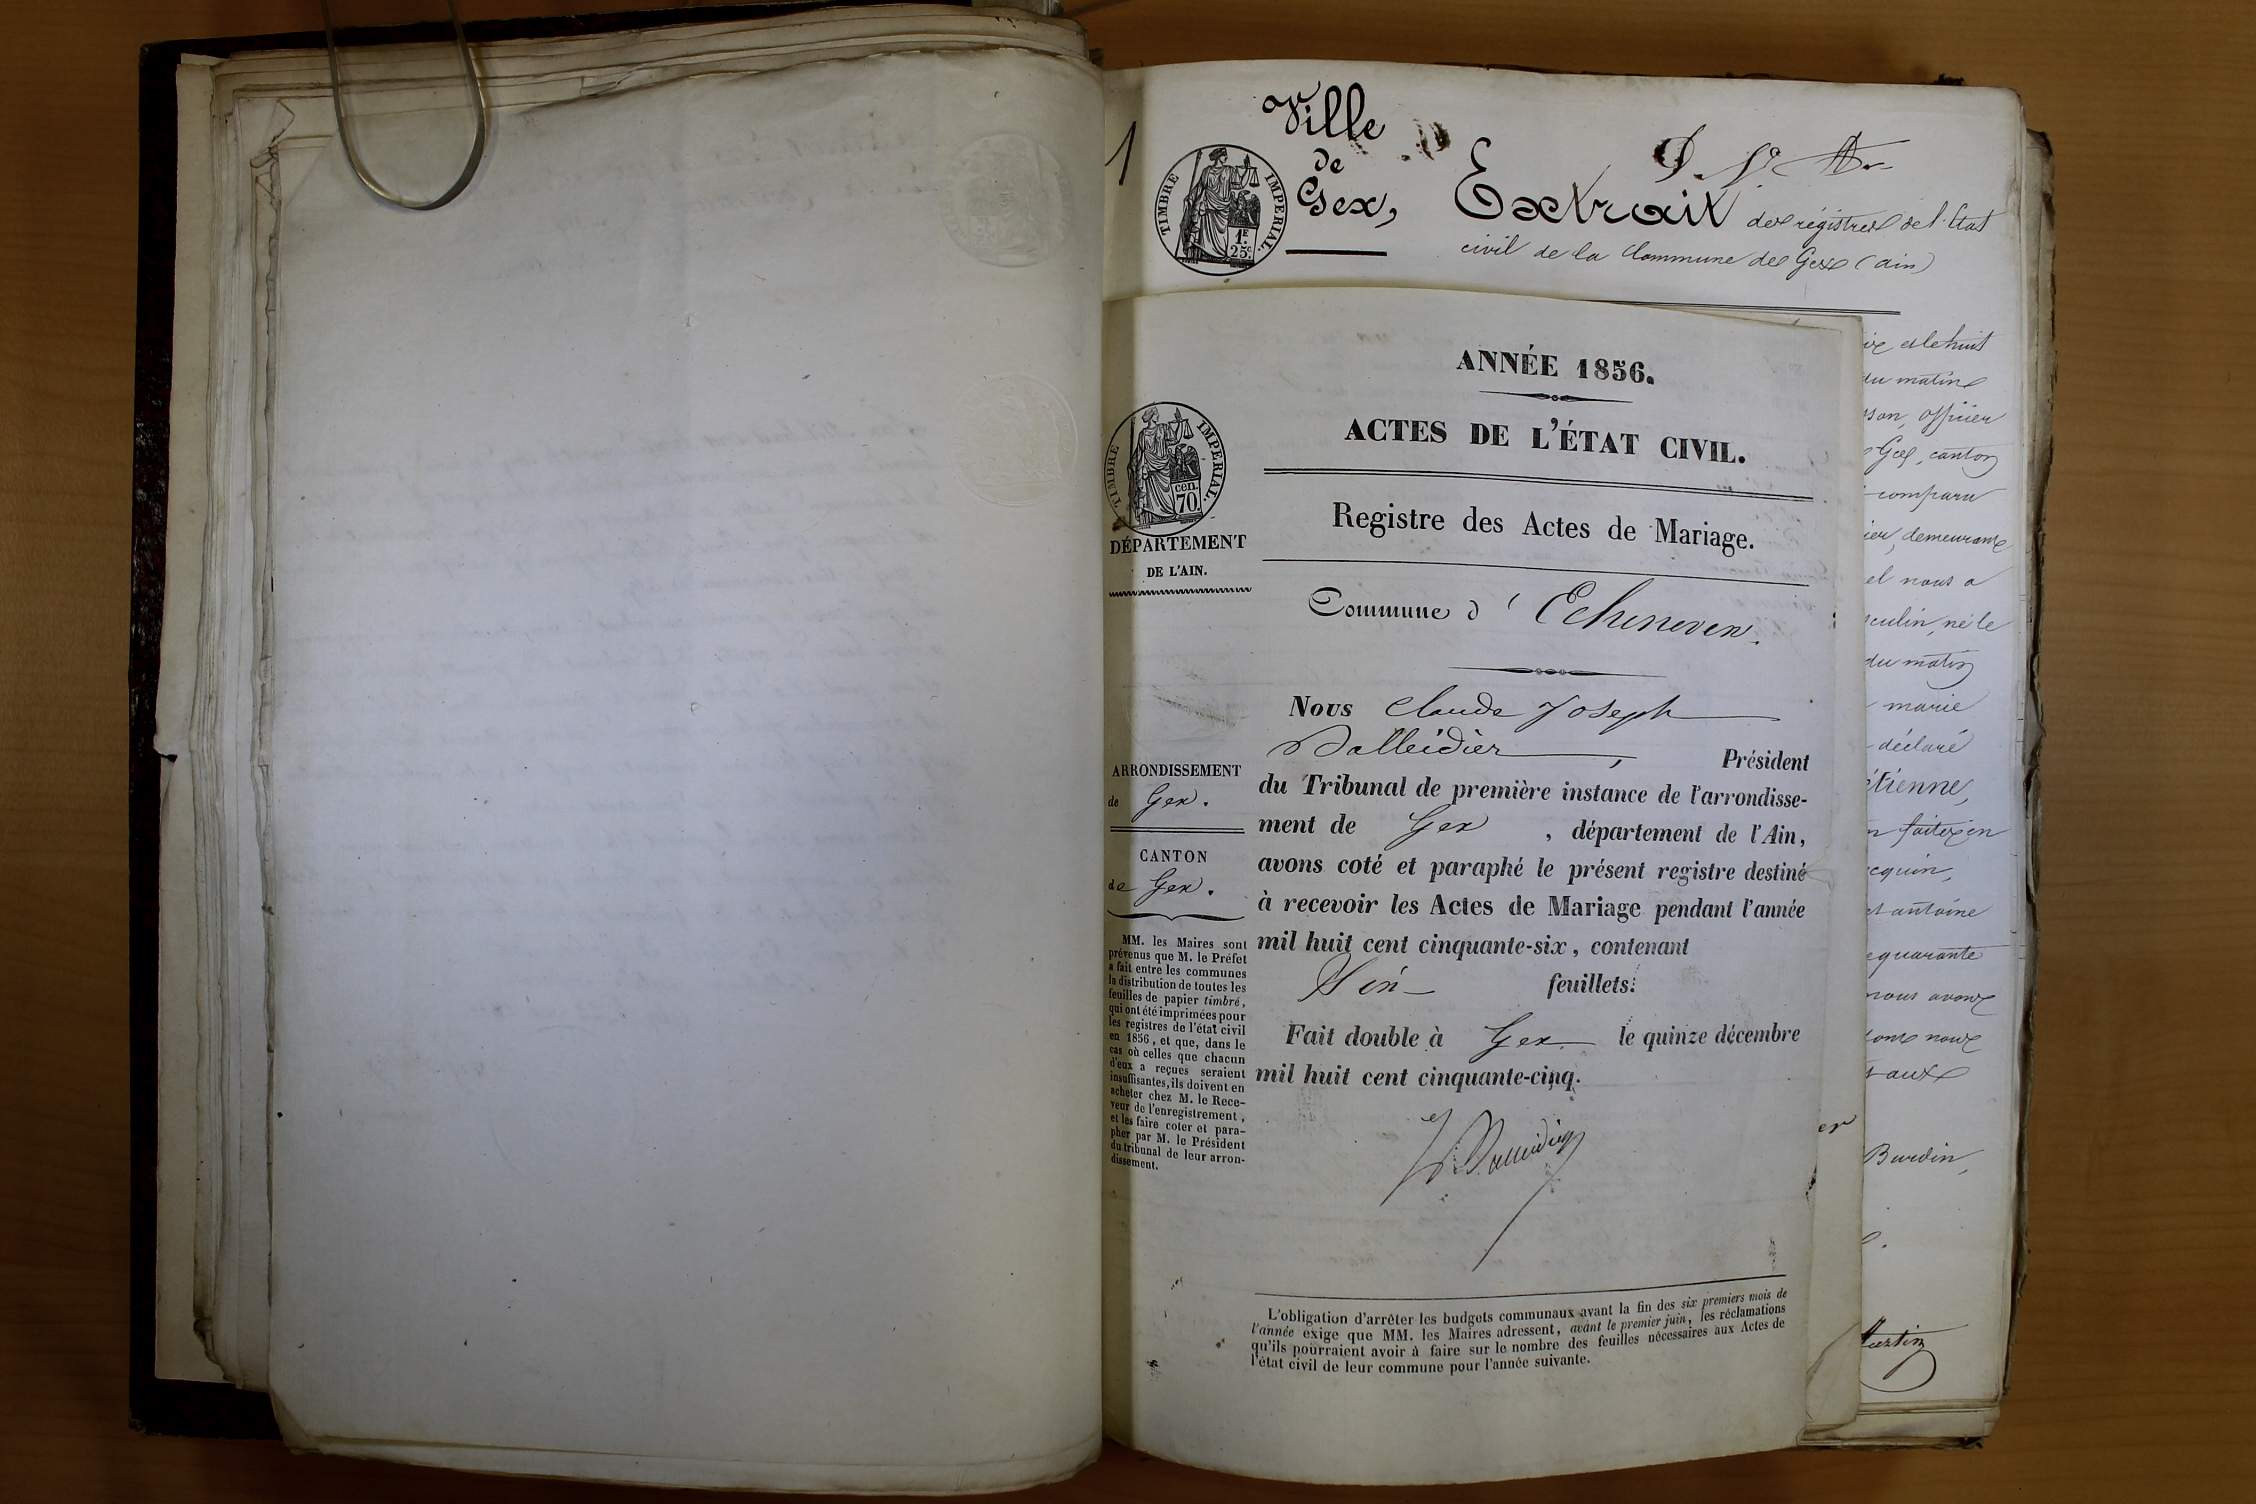 1
Ville
de
Gex,
TIMBRE IMPERIAL.
1F.
25c.
Extrait des régistres de l'Etat
civil de la Commune de Gex (ain)
ANNÉE 1856.
ACTES DE L'ÉTAT CIVIL.
Registre des Actes de Mariage.
Commune d'Echenevex.
TIMBRE IMPERIAL.
cen.
70.
DÉPARTEMENT
DE L'AIN.
ARRONDISSEMENT
de Gex.
CANTON
de Gex.
MM. les Maires sont
prévenus que M. le Préfet
a fait entre les communes
la distribution de toutes les
feuilles de papier timbré,
qui ont été imprimées pour
les registres de l'état civil
en 1856, et que, dans le
cas où celles que chacun
d'eux a reçues seraient
insuffisantes, ils doivent en
acheter chez M. le Rece-
veur de l'enregistrement,
et les faire coter et para-
pher par M. le Président
du tribunal de leur arron-
dissement.
Nous Claude Joseph
Balleidier, Président
du Tribunal de première instance de l'arrondisse-
ment de Gex, département de l'Ain,
avons coté et paraphé le présent registre destiné
à recevoir les Actes de Mariage pendant l'année
mil huit cent cinquante-six, contenant
feuillets.
Fait double à Gex le quinze décembre
mil huit cent cinquante-cinq.
L'obligation d'arrêter les budgets communaux avant la fin des six premiers mois de
l'année exige que MM. les Maires adressent, avant le premier juin, les réclamations
qu'ils pourraient avoir à faire sur le nombre des feuilles nécessaires aux Actes de
l'état civil de leur commune pour l'année suivante.
et le huit
du matin
officier
Gex, canton
comparu
demeurant
nous a
né le
du matin
marie
déclaré
étienne,
antoine
quarante
nous avons
nous
aux
er
Burdin,